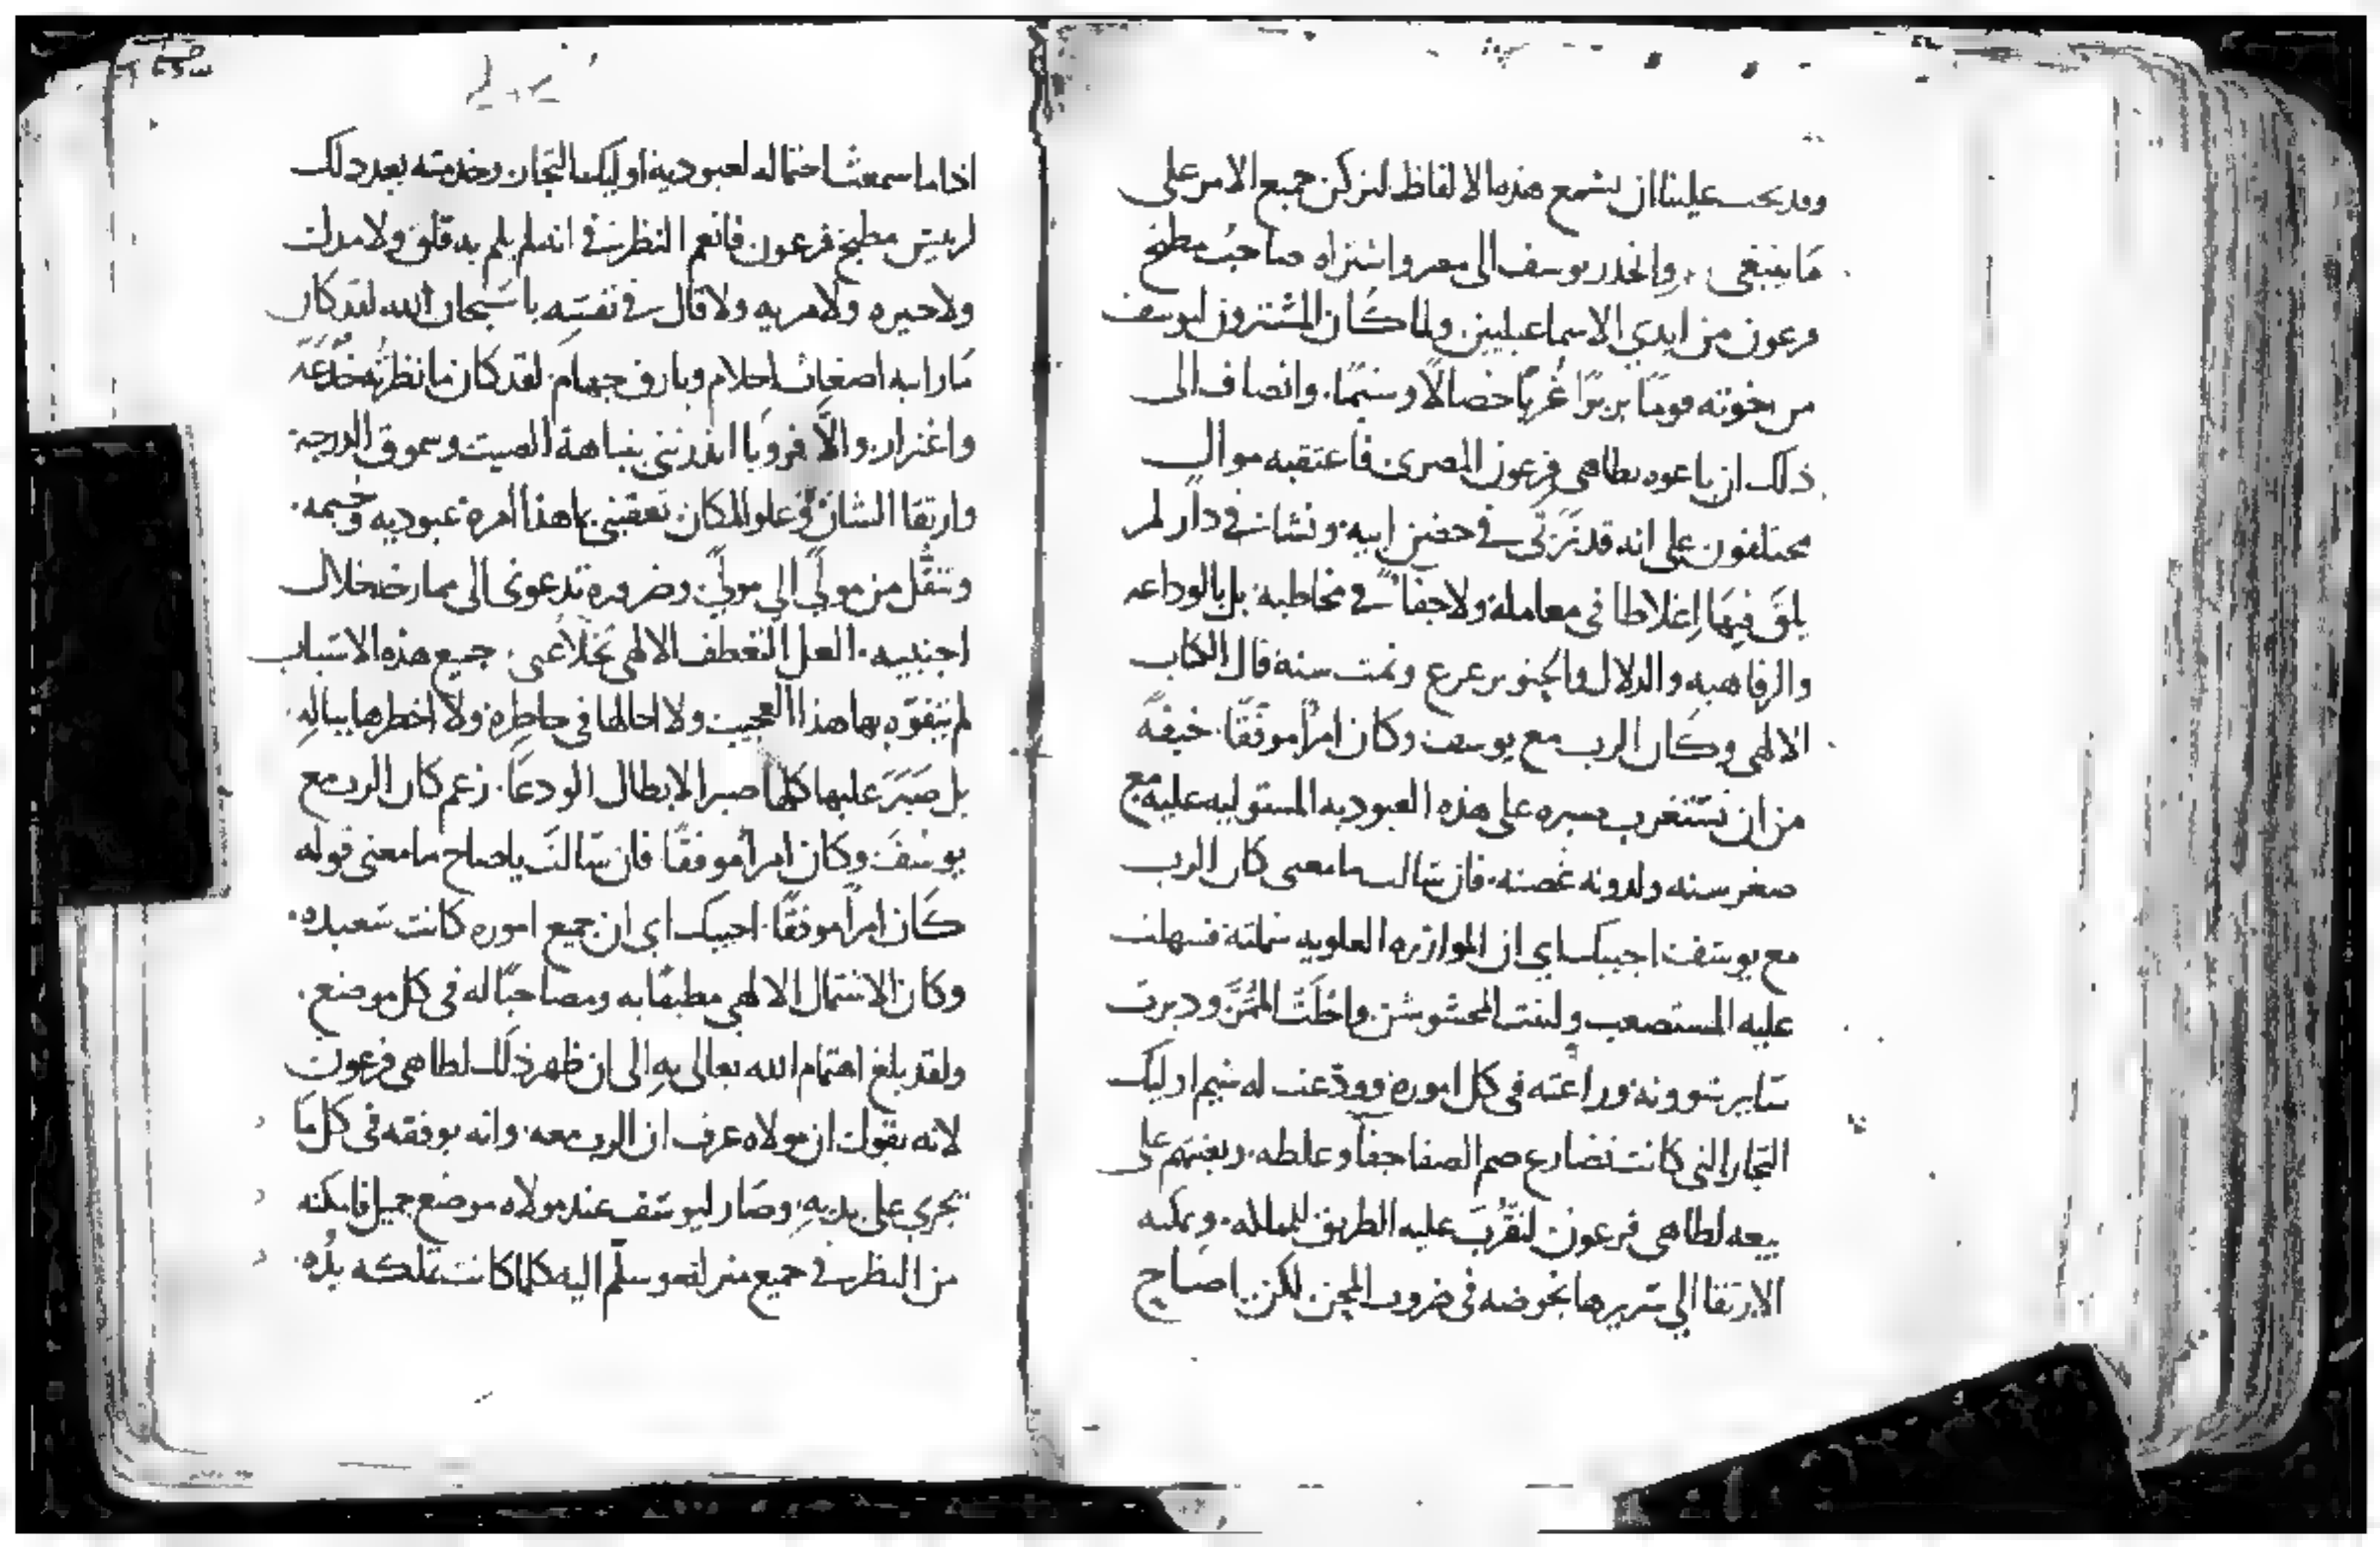 وقد يجب علينا ان نسمع هذه الالفاظ لنزكن جميع الامر على
ما ينبغي. وانحدر يوسف الى مصر واشتراه صاحب مطبخ
فرعون من ايدي الاسماعيليين ولما كان المشترون ليوسف
من اخوته قومًا بربرًا غُربًا خصالًا وشيمًا. وانضاف الى
ذلك ان باعوه لطاهي فرعون المصري فاعتقبه موالٍ
مختلفون على انه قد تربّى في حضن ابيه ونشا في دار لم
يلقَ فيها اغلاظا في معامله ولا جفاً في مخاطبه بل بالوداعه
والرفاهيه والدلال والحنو ترعرع ونمت سنه قال الكتاب
الالهي وكان الرب مع يوسف وكان امراً موفقًا. خيفةً
من ان تستغرب صبره على هذه العبوديه المستوليه عليه مع
صغر سنه ولدونه غصنه. فان سالت ما معنى كان الرب
مع يوسف اجيبك اي ان الموازره العلويه شملته فسهلت
عليه المستصعب ولينت المخشوشن واحلَت الممُرّ ودبرت
ساير شوونه وراعته في كل اموره وودّعت له شيم اوليك
التجار التي كانت تضارع صم الصفا جفاً وغلظه. وبعثتهم على
بيعه لطاهي فرعون لتقرّب عليه الطريق للمملكه. ويمكنه
الارتقا الى سريرها بخوضه في ضروب المحن لكن يا صاح
اذا ما سمعت احتماله لعبودية اوليك التجار وخدمته بعد ذلك
لرييس مطبخ فرعون فانعم النظر في انه لم يلم به قلق ولا
ولا حيره ولا مريه ولا قال في نفسه يا سبحان الله لقد كان
ما رايته اضغاث احلام وبارق جهام لقد كان ما نظرته خدعَه
واغترار والا فرويا انذرتني بنباهة الصيت وسمو الدرجة
وارتقا الشان وعلو المكان تعقبني ياهذا امرة عبوديه وخيمه.
وتنقّل من مولىً الى مولىً وضروره تدعوني الى ممارضة خلال
اجنبيه. العل التعطف الالهي تخلا عني. جميع هذه الاسباب
لم يتفوّه بها هذا العجيب ولا احالها في خاطره ولا اخطرها ببالهِ.
بل صبرَ عليها كلها صبر الابطال الودعا. زعم كان الرب مع
يوسفَ وكان امراً موفقًا فان سالتَ يا صاح ما معنى قوله
كان امراً موفقًا. اجيبك اي ان جميع اموره كانت سعيده.
وكان الاشتمال الالهي مطيفًا به ومصاحبًا له في كل موضع.
ولقد بلغ اهتمام الله تعالى بهِ الى ان ظهر ذلك لطاهي فرعون
لانه يقول ان مولاه عرف ان الرب معه. وانه يوفقه في كل ما
يجري على يديهِ وصار ليوسف عند مولاه موضع جميل فامكنه
من النظر في جميع منزله وسلّم اليه كلما كانت تملكه يدُه.